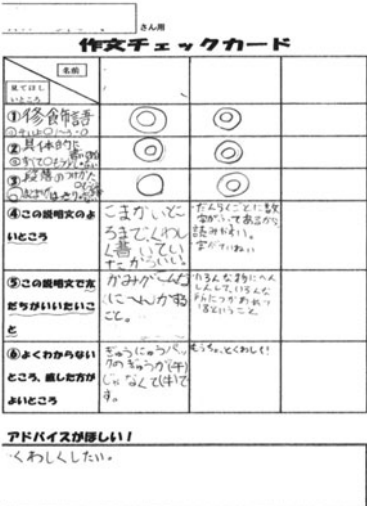 さん用
作文チェックカード
名前
見てほしいところ
①修飾語
②具体的に
③段落のつけかた
④この説明文のよ
いところ
こまかいと
ころまで、くわし
く書いてい
たからいい。
だんらくごとに数
字がいってあるから
読みやすい。
字がていねい
⑤この説明文で友
だちがいいたいこ
と
かみがこんな
にへんかする
こと。
いろんな物にへん
しんして、いろんな
所につかわれて
いるということ。
⑥よくわからない
ところ、直した方が
よいところ
ぎゅうにゅうパッ
クのぎゅうが(午)
じゃなくて(牛)で
す。
もうちょっとくわしく!
アドバイスがほしい!
・くわしくしたい。